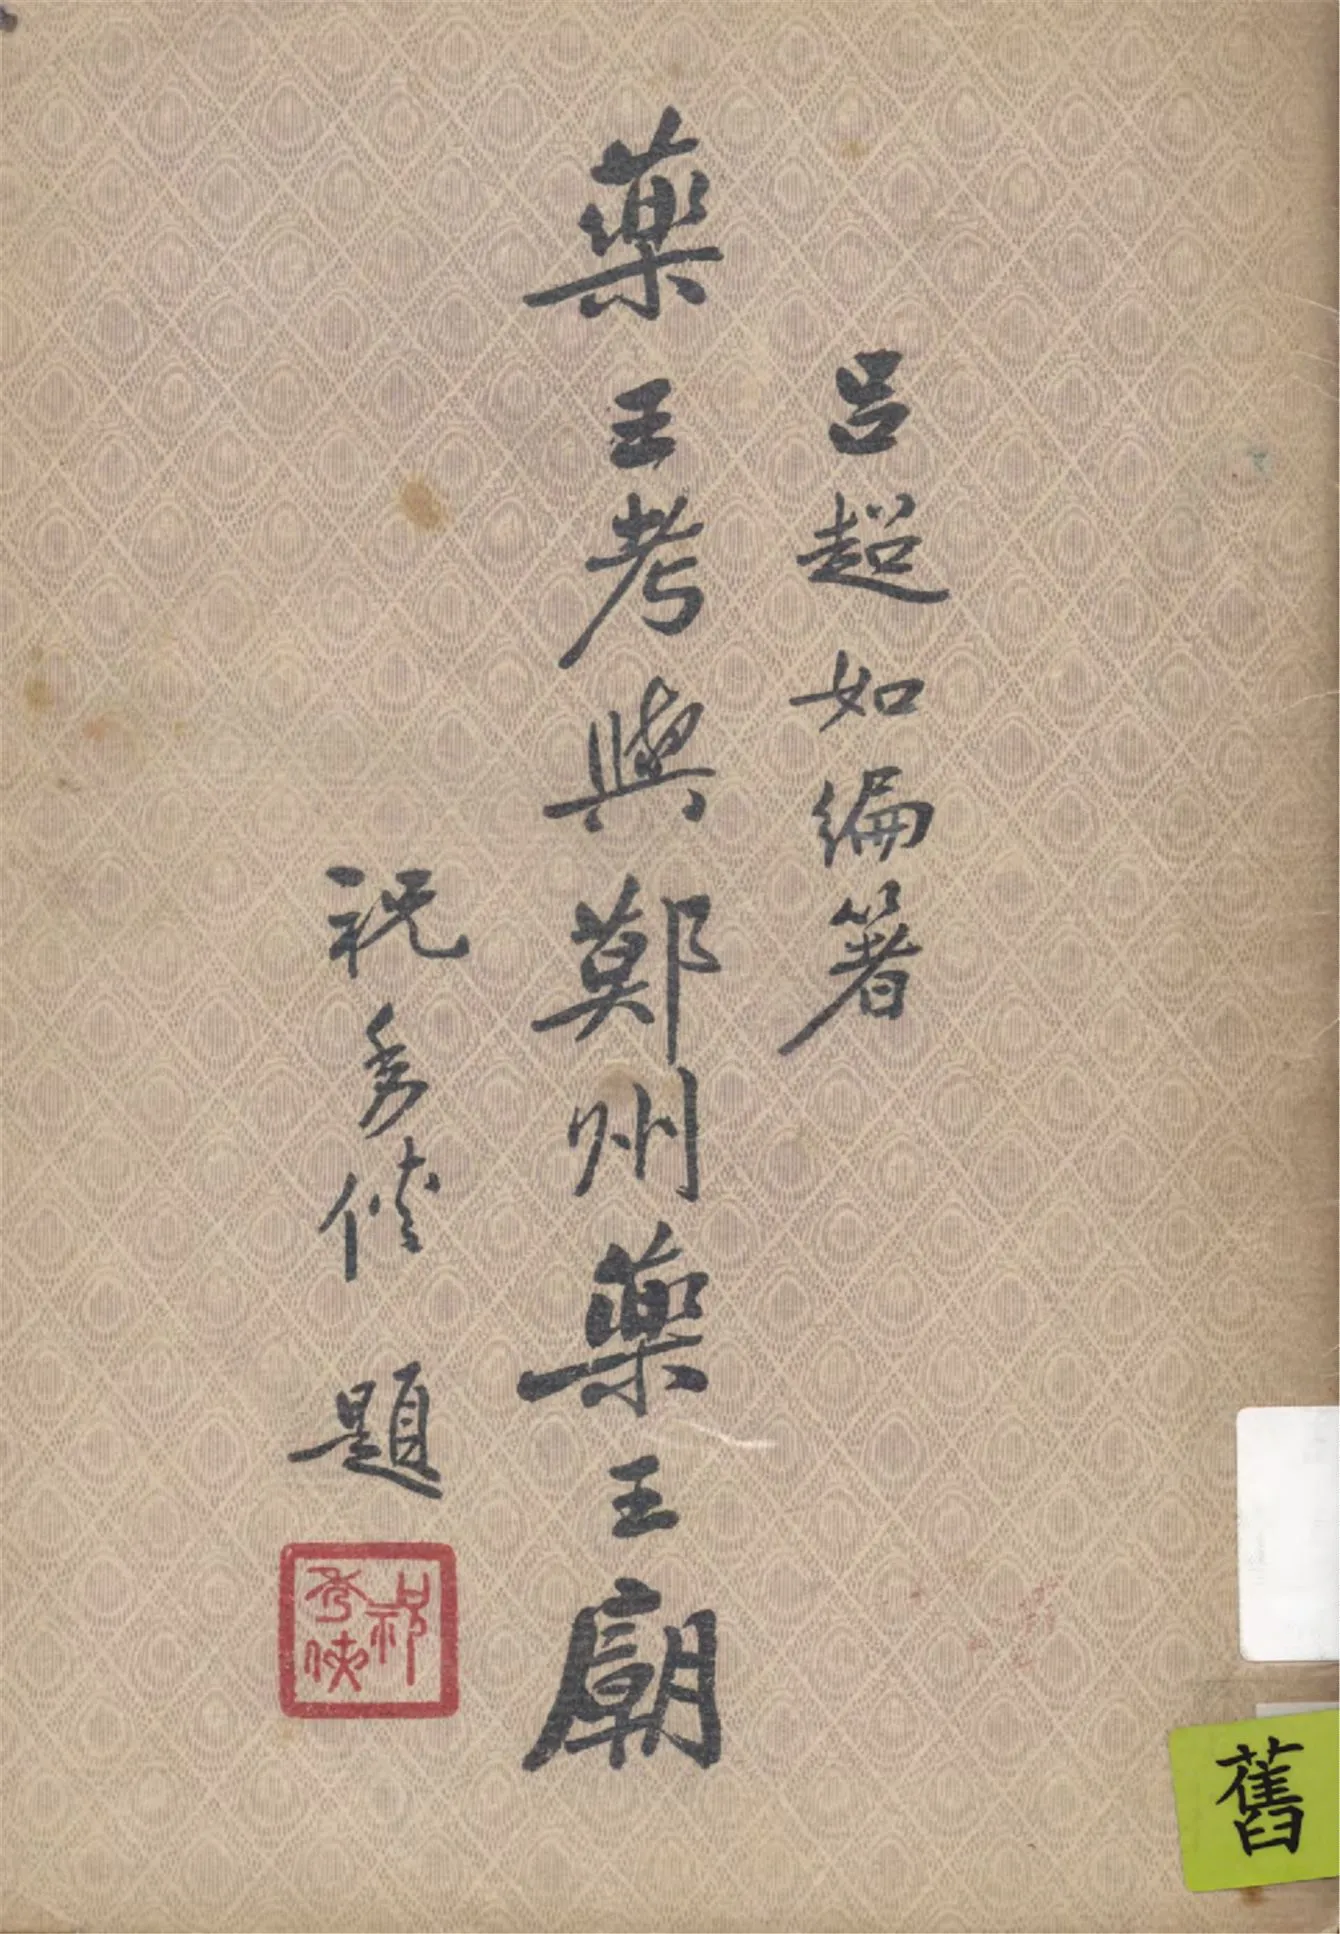 呂超如編箸
藥王考與鄚州藥王廟
祝秀俠 題
祝
秀俠
舊